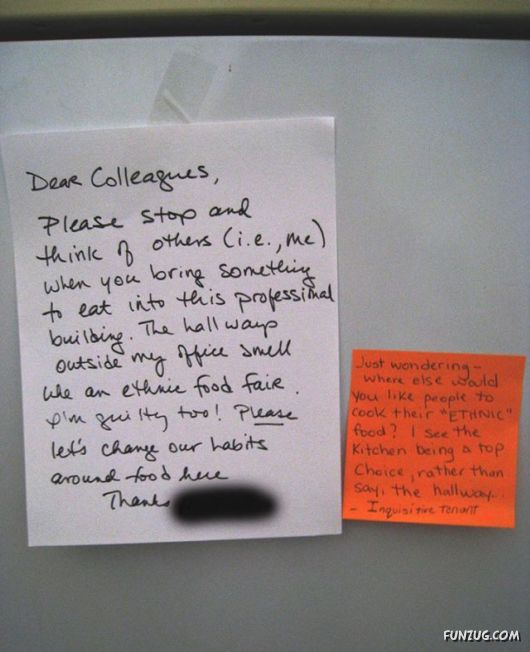 Dear Colleagues,
Please stop and
think of others (i.e., me)
when you bring something
to eat into this professional
building. The hallways
outside my office smell
like an ethnic food fair.
I'm guilty too! Please
let's change our habits
around food here
Thanks
Just wondering-
where else would
you like people to
cook their "ETHNIC"
food? I see the
Kitchen being a top
Choice, rather than
say, the hallway...
- Inquisitive Tenant
FUNZUG.COM